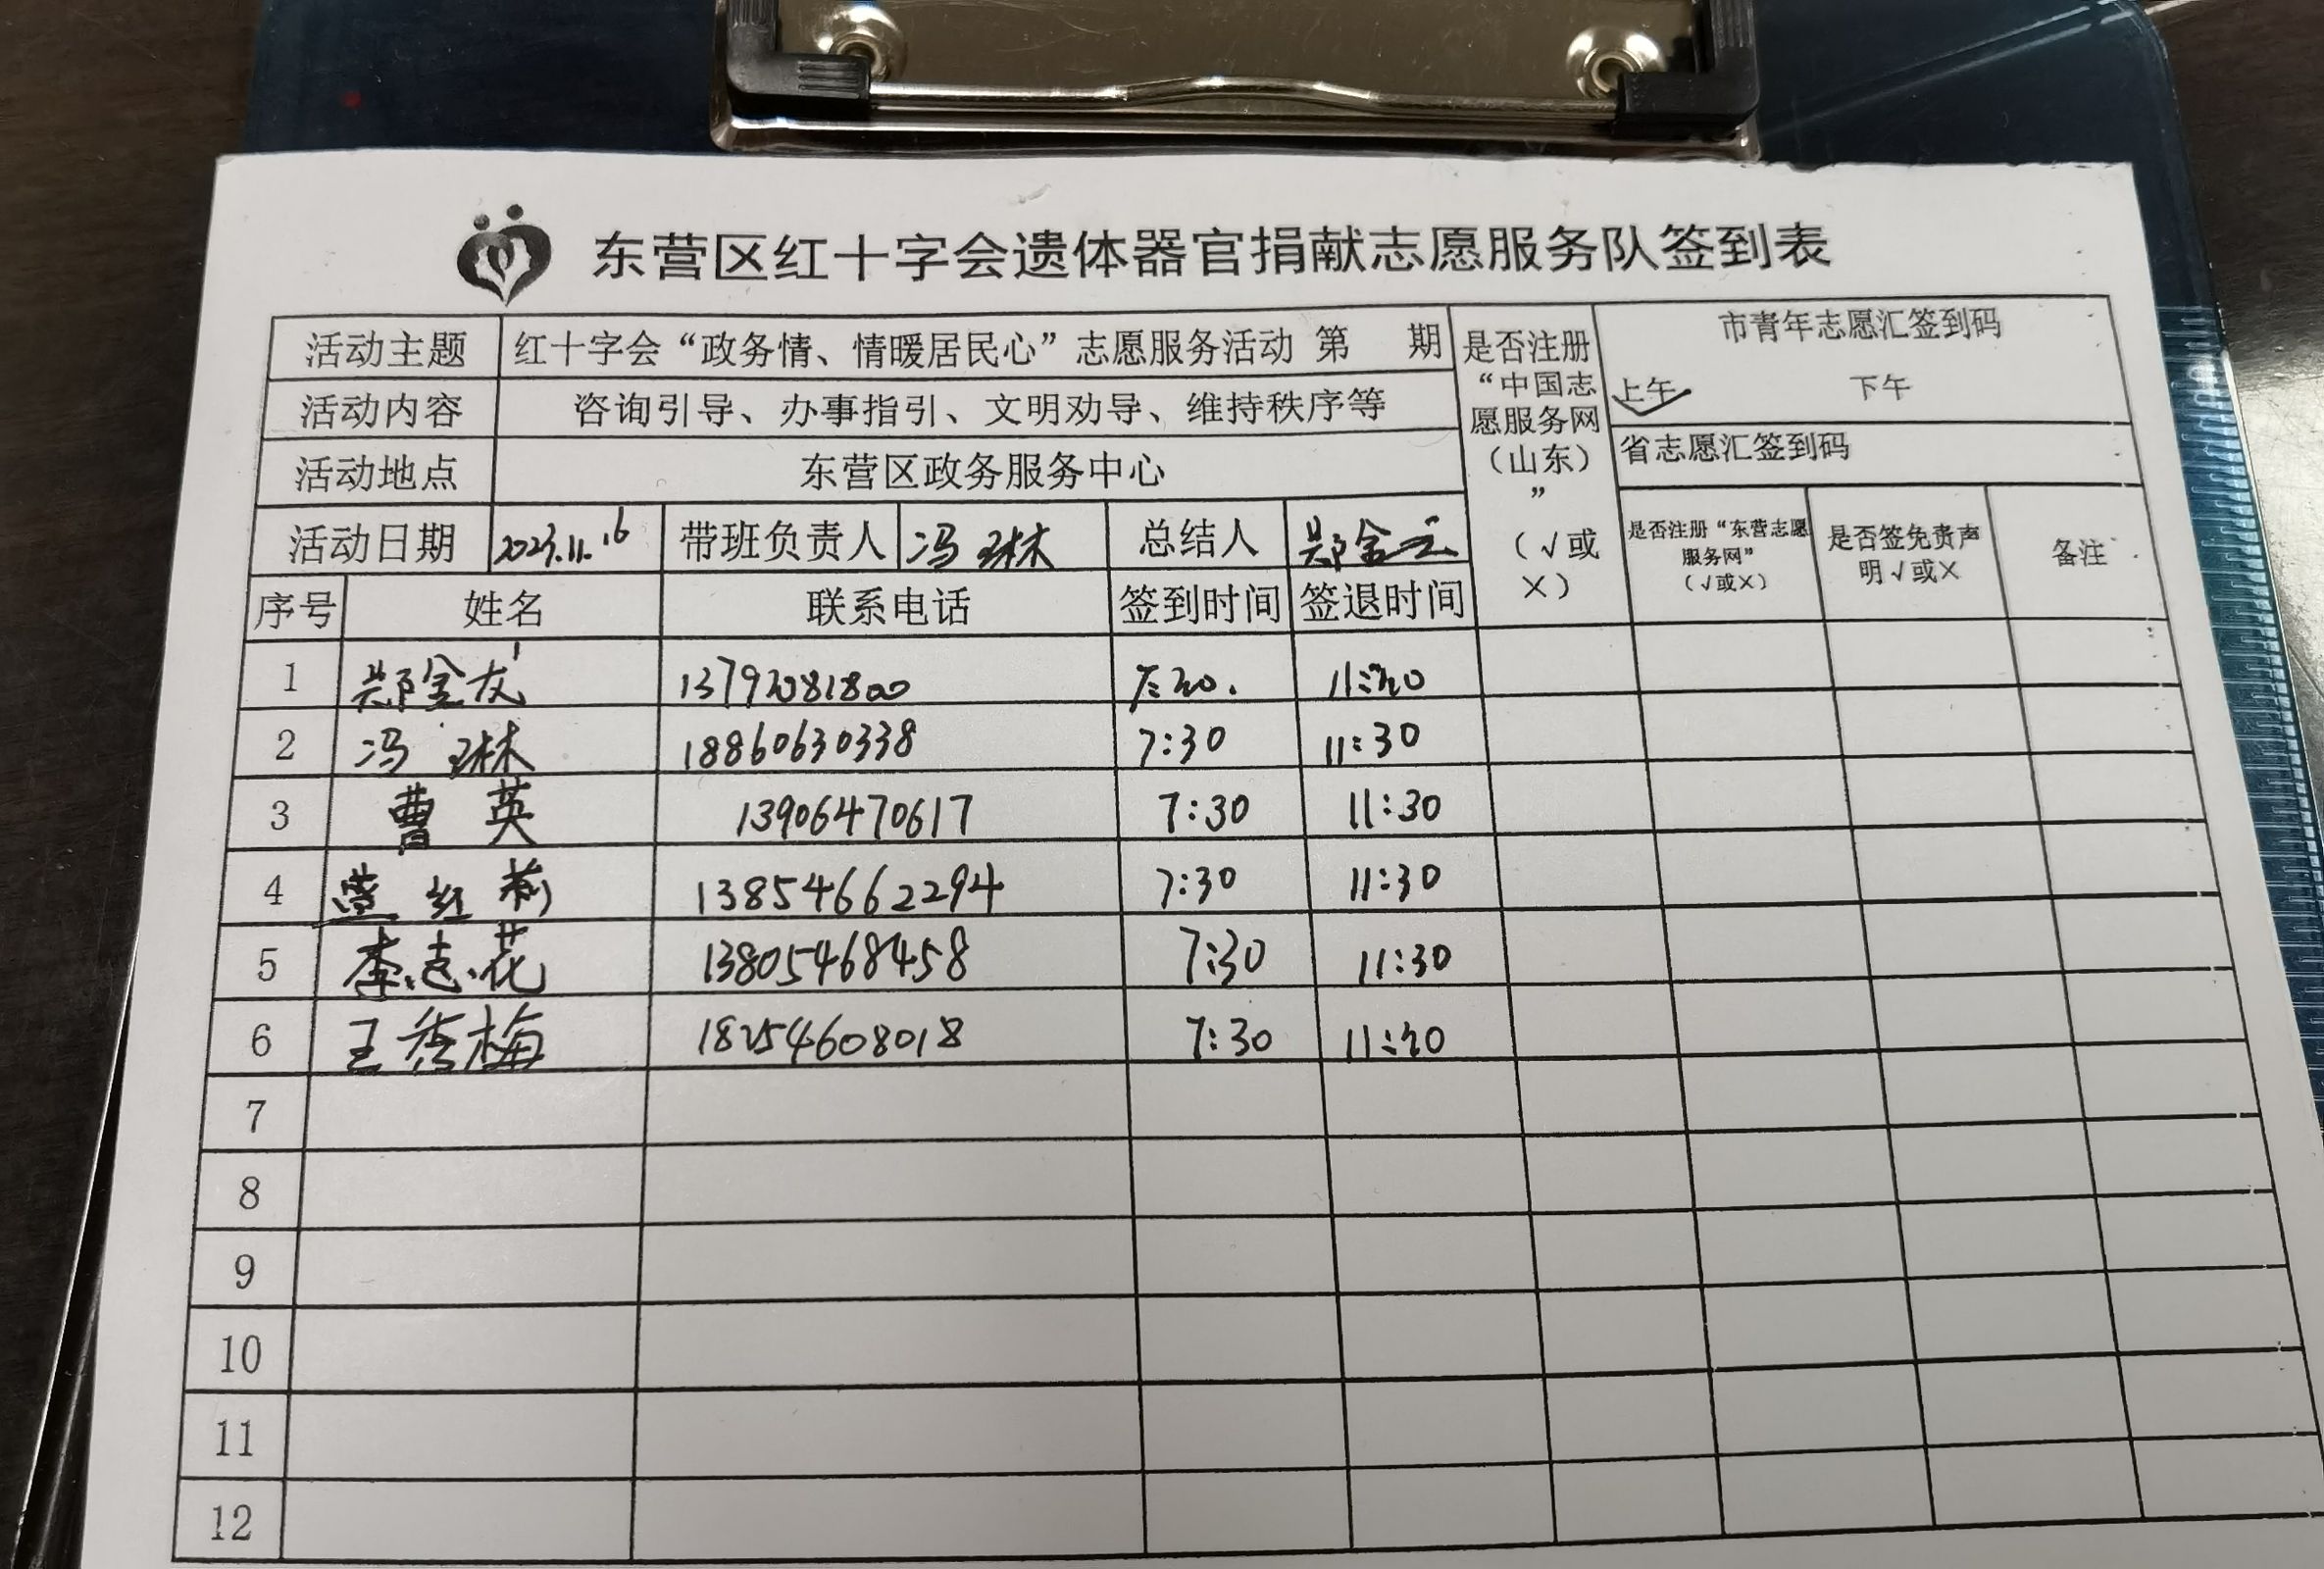 东营区红十字会遗体器官捐献志愿服务队签到表
活动主题 红十字会“政务情、情暖居民心”志愿服务活动 第 期
是否注册“中国志愿服务网（山东）”（√或×）
市青年志愿汇签到码
上午 下午
活动内容 咨询引导、办事指引、文明劝导、维持秩序等
省志愿汇签到码
活动地点 东营区政务服务中心
活动日期 2023.11.16 带班负责人 冯琳 总结人 郑金云
是否注册“东营志愿服务网”（√或×） 是否签免责声明√或× 备注
序号 姓名 联系电话 签到时间 签退时间
1 郑金友 13792081800 7:30. 11:30
2 冯琳 18860630338 7:30 11:30
3 曹英 13906470617 7:30 11:30
4 红莉 13854662294 7:30 11:30
5 李志花 13805468458 7:30 11:30
6 王秀梅 18254608018 7:30 11:30
7
8
9
10
11
12